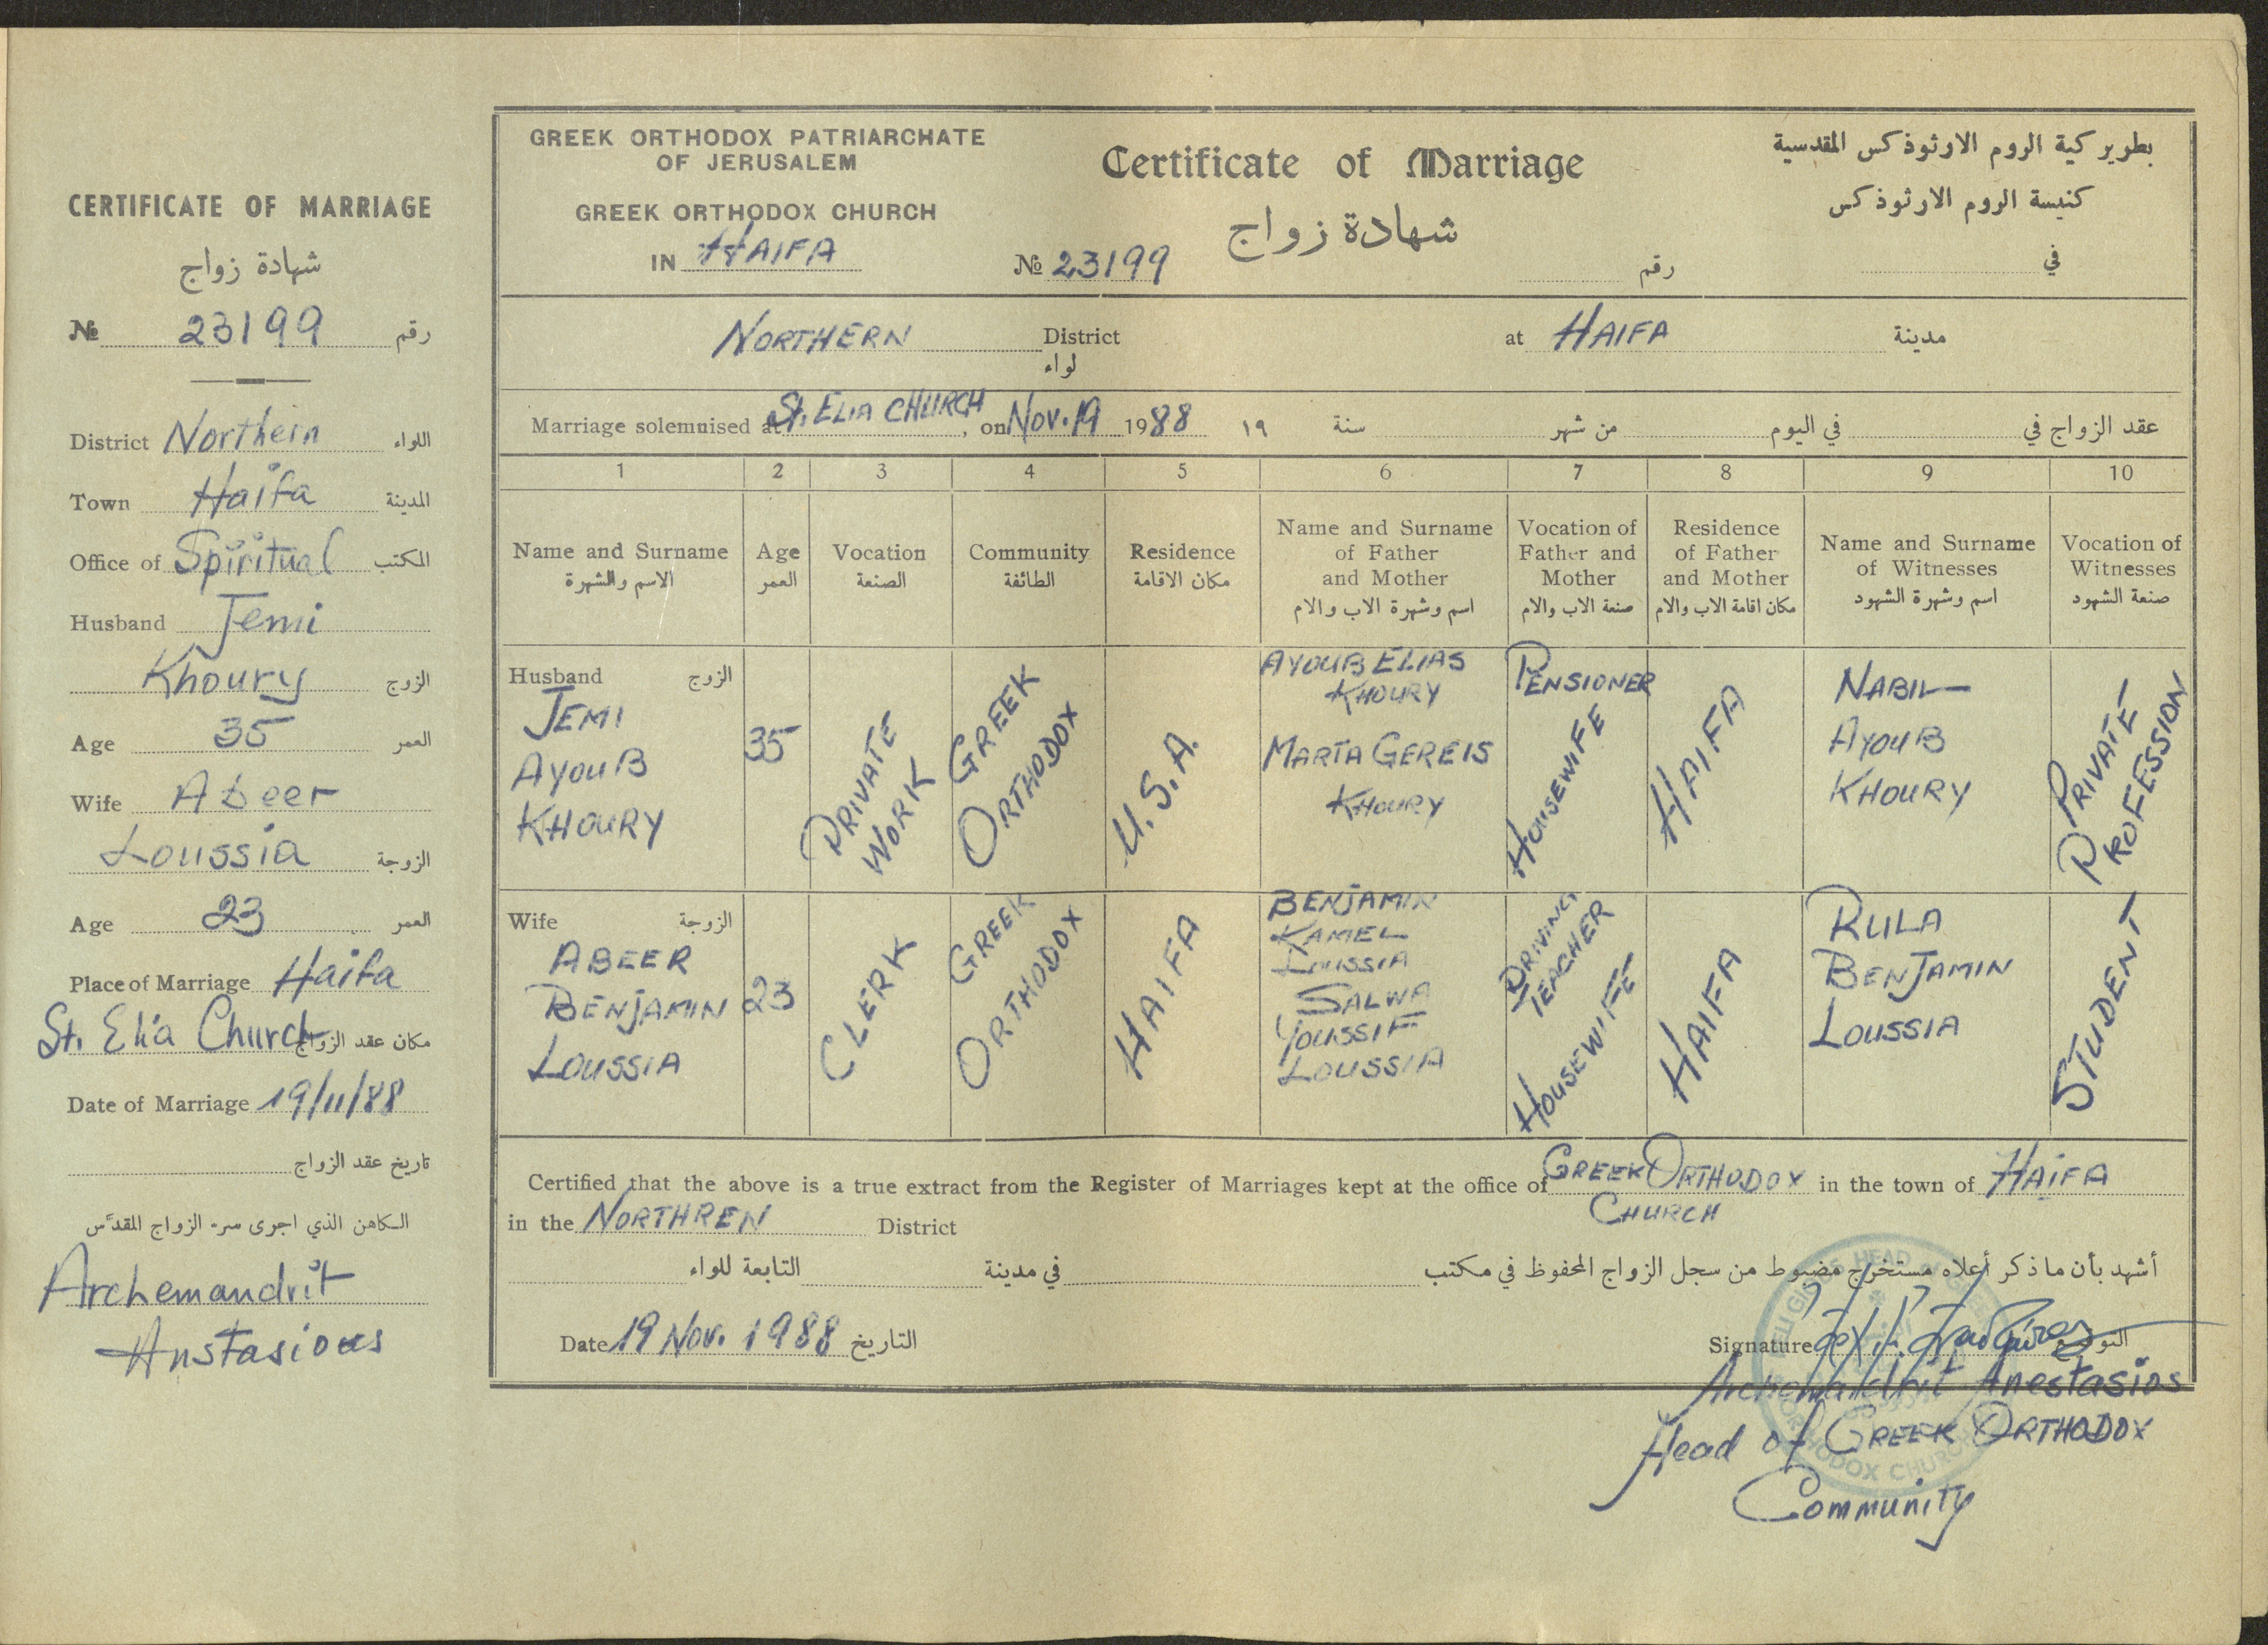 CERTIFICATE OF MARRIAGE
شهادة زواج
№ 23199 رقم
District Northern اللواء
Town Haifa المدينة
Office of Spiritual المكتب
Husband Jemi
Khoury الزوج
Age 35 العمر
Wife Abeer
Loussia الزوجة
Age 23 العمر
Place of Marriage Haifa
St. Elia Church مكان عقد الزواج
Date of Marriage 19/11/88
تاريخ عقد الزواج
الكاهن الذي اجرى سر الزواج المقدّس
Archemandrit
Anstasious
GREEK ORTHODOX PATRIARCHATE
OF JERUSALEM
GREEK ORTHODOX CHURCH
IN HAIFA
Certificate of Marriage
شهادة زواج
№ 23199 رقم
بطريركية الروم الارثوذكس المقدسية
كنيسة الروم الارثوذكس
في
NORTHERN District at HAIFA مدينة
لواء
Marriage solemnised at St. ELIA CHURCH, on Nov. 19 1988 عقد الزواج في في اليوم من شهر سنة ١٩
1 2 3 4 5 6 7 8 9 10
Name and Surname
الاسم والشهرة
Age
العمر
Vocation
الصنعة
Community
الطائفة
Residence
مكان الاقامة
Name and Surname
of Father
and Mother
اسم وشهرة الاب والام
Vocation of
Father and
Mother
صنعة الاب والام
Residence
of Father
and Mother
مكان اقامة الاب والام
Name and Surname
of Witnesses
اسم وشهرة الشهود
Vocation of
Witnesses
صنعة الشهود
Husband الزوج
JEMI
AYOUB
KHOURY
35
PRIVATE
WORK
GREEK
ORTHODOX
U.S.A.
AYOUB ELIAS
KHOURY
MARTA GEREIS
KHOURY
PENSIONER
HOUSEWIFE
HAIFA
NABIL
AYOUB
KHOURY
PRIVATE
PROFESSION
Wife الزوجة
ABEER
BENJAMIN
LOUSSIA
23
CLERK
GREEK
ORTHODOX
HAIFA
BENJAMIN
KAMEL
LOUSSIA
SALWA
YOUSSIF
LOUSSIA
DRIVING
TEACHER
HOUSEWIFE
HAIFA
RULA
BENJAMIN
LOUSSIA
STUDENT
Certified that the above is a true extract from the Register of Marriages kept at the office of GREEK ORTHODOX in the town of HAIFA
CHURCH
in the NORTHREN District
أشهد بأن ما ذكر أعلاه مستخرج مضبوط من سجل الزواج المحفوظ في مكتب في مدينة التابعة للواء
Date 19 Nov. 1988 التاريخ
Signature التوقيع
Archemandrit Anestasios
Head of GREEK ORTHODOX
Community